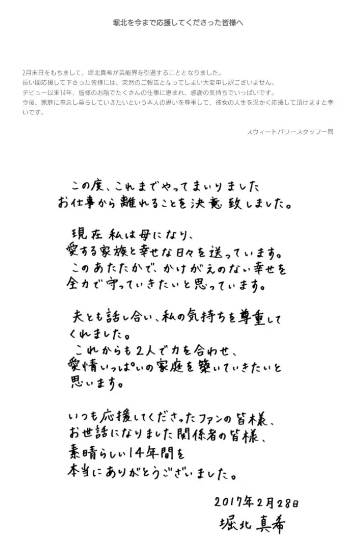 堀北を今まで応援してくださった皆様へ
2月末日をもちまして、堀北真希が芸能界を引退することとなりました。
長い間応援して下さった皆様には、突然のご報告となってしまい大変申し訳ございません。
デビュー以来14年、皆様のお陰でたくさんの仕事に恵まれ、感謝の気持ちでいっぱいです。
今後、家族に専念し暮らしていきたいという本人の思いを尊重して、彼女の人生を温かく応援して頂けますと幸
いです。
スウィートパワースタッフ一同
この度、これまでやってまいりました
お仕事から離れることを決意致しました。
現在私は母になり、
愛する家族と幸せな日々を送っています。
このあたたかで、かけがえのない幸せを
全力で守っていきたいと思っています。
夫とも話し合い、私の気持ちを尊重して
くれました。
これからも2人で力を合わせ、
愛情いっぱいの家庭を築いていきたいと
思います。
いつも応援してくださったファンの皆様、
お世話になりました関係者の皆様、
素晴らしい14年間を
本当にありがとうございました。
2017年2月28日
堀北真希